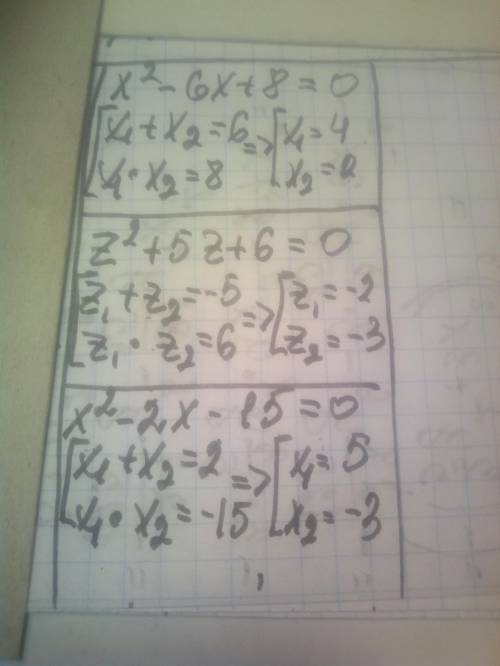 x² - 6x + 8 = 0
[x₁ + x₂ = 6 => [x₁ = 4
x₁ · x₂ = 8 x₂ = 2
z² + 5z + 6 = 0
[z₁ + z₂ = -5 => [z₁ = -2
z₁ · z₂ = 6 z₂ = -3
x² - 2x - 15 = 0
[x₁ + x₂ = 2 => [x₁ = 5
x₁ · x₂ = -15 x₂ = -3